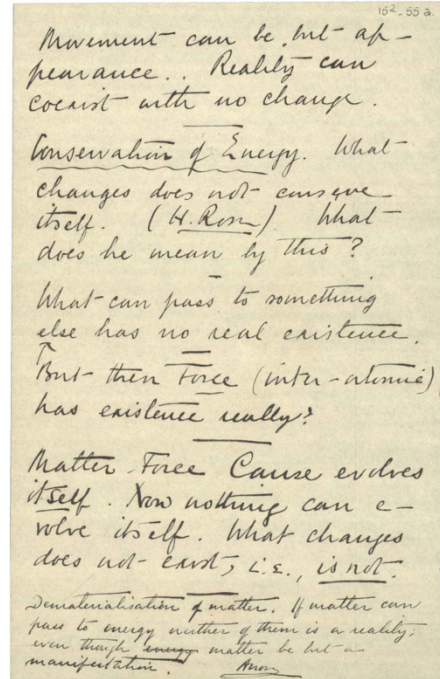 152-55a
Movement can be but ap-
pearance.. Reality can
coexist with no change.
Conservation of Energy. What
changes does not conserve
itself. (H. Rosn) What
does he mean by this?
What can pass to something
else has no real existence.
But then Force (inter-atomic)
has existence really?
Matter-Force Cause evolves
itself. Now nothing can e-
volve itself. What changes
does not exist, i.e., is not.
Dematerialisation of matter. If matter can
pass to energy neither of them is a reality;
even though energy matter be but a
manifestation.